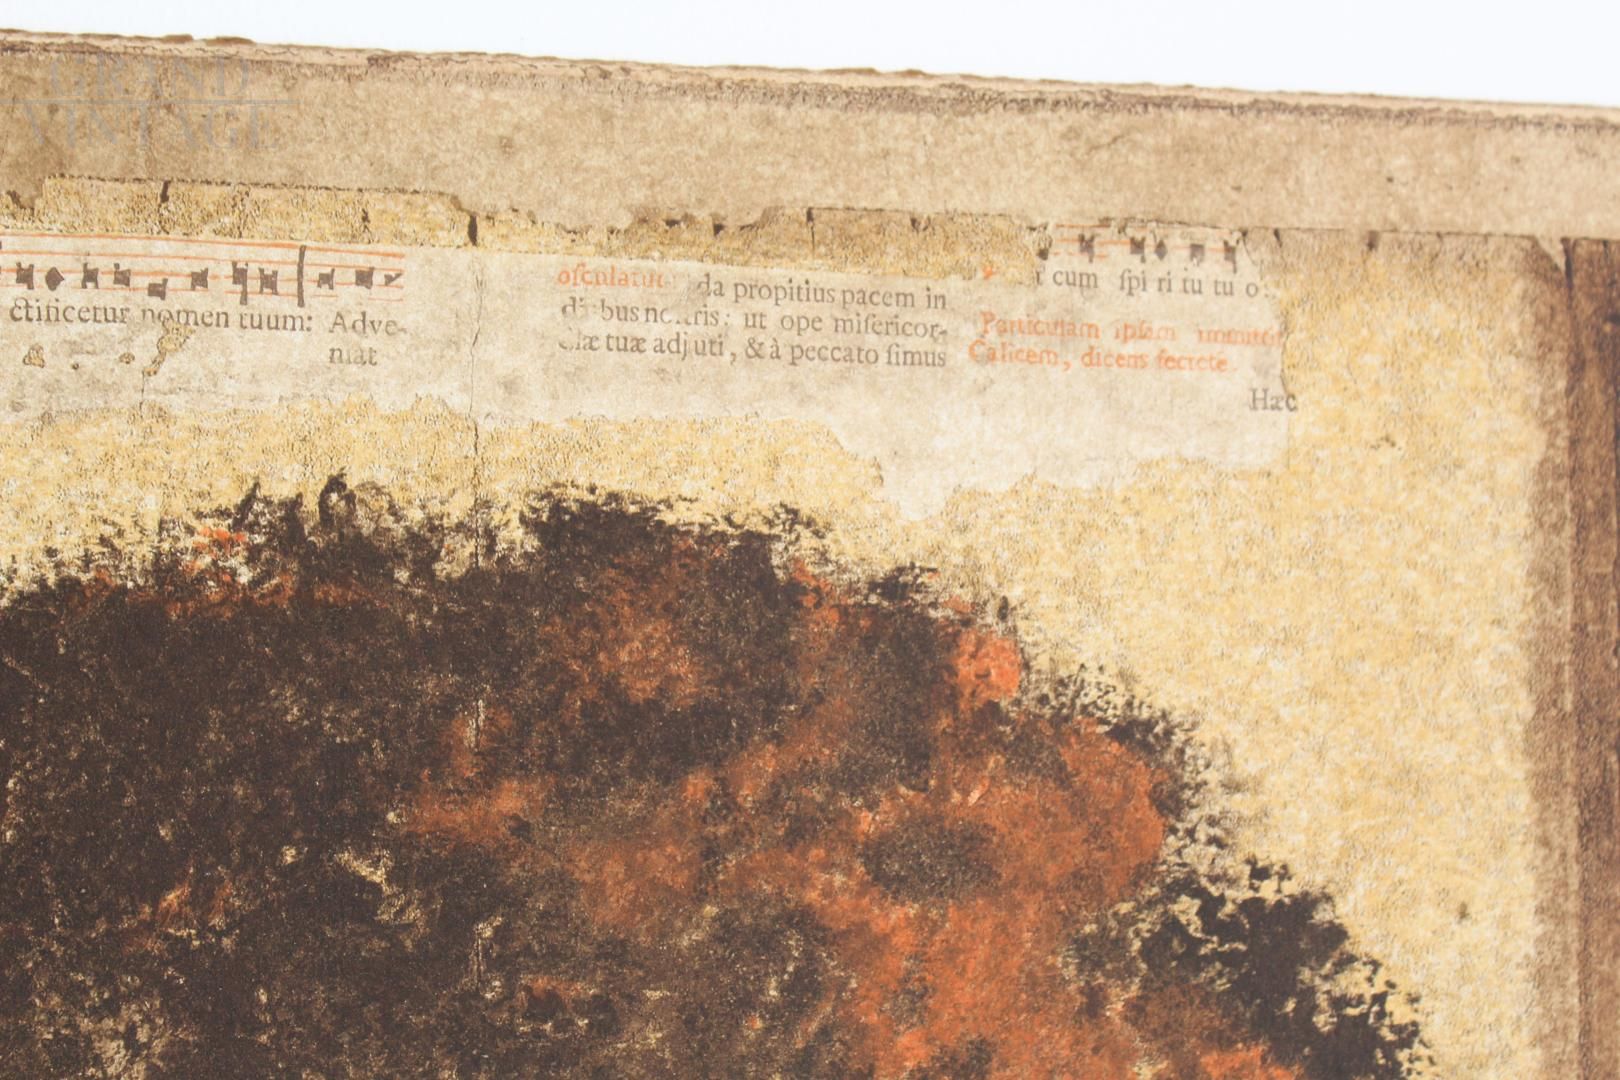 GRAND
VINTAGE
ctificetur nomen tuum: Adve-
niat
osculatur da propitius pacem in
ris: ut ope misericor-
tuæ adjuti, & à peccato simus
cum spi ri tu tu o.
Particulam ipsam
Calicem, dicens secrete.
Hæc